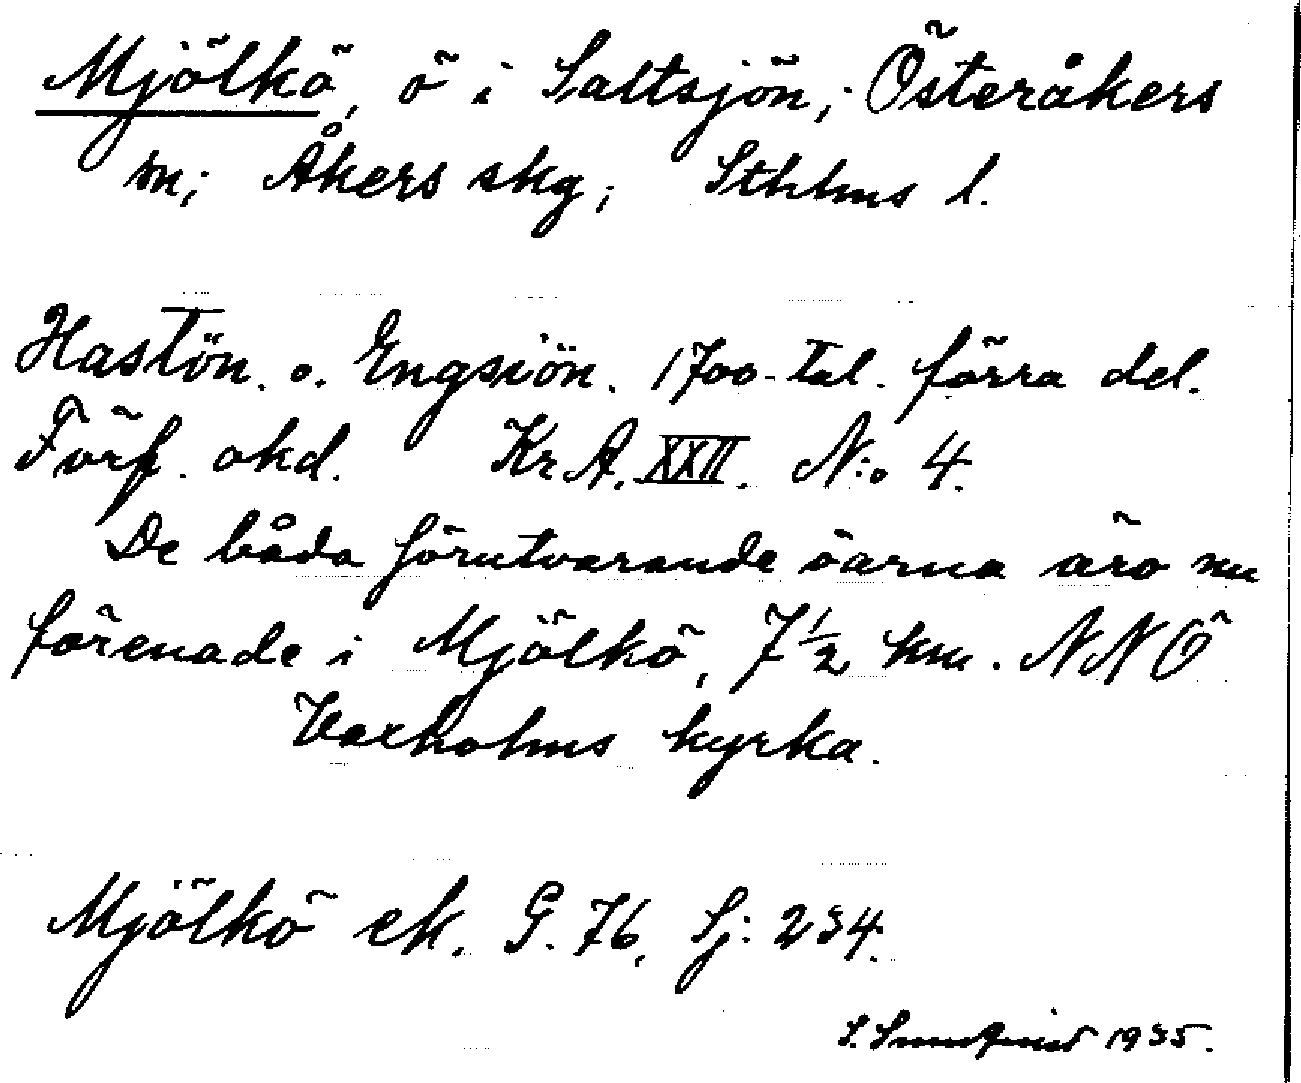 Mjölkö, ö i Saltsjön; Österåkers
sn; Åkers skg; Sthlms l.
Hastön. o. Engsiön. 1700-tal. förra del.
Förf. okd. Kr A. XXII. N:o 4.
De båda förutvarande öarna äro nu
förenade i Mjölkö, 7 1/2 km. NNÖ
Vaxholms kyrka.
Mjölkö ek. G. 76, Sj: 234.
S. 1935.